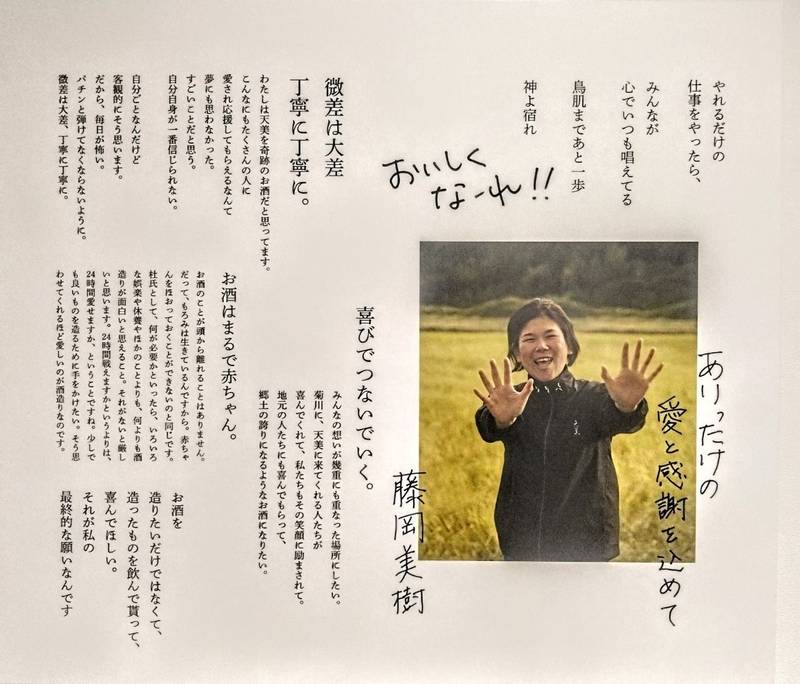 やれるだけの
仕事をやったら、
みんなが
心でいつも唱えてる
鳥肌まであと一歩
神よ宿れ
おいしく
なーれ!!
微差は大差
丁寧に丁寧に。
わたしは天美を奇跡のお酒だと思ってます。
こんなにもたくさんの人に
愛され応援してもらえるなんて
夢にも思わなかった。
すごいことだと思う。
自分自身が一番信じられない。
自分ごとなんだけど
客観的にそう思います。
だから、毎日が怖い。
パチンと弾けてなくならないように。
微差は大差、丁寧に丁寧に。
お酒はまるで赤ちゃん。
お酒のことが頭から離れることはありません。
だって、もろみは生きているんですから。赤ちゃ
んをほおっておくことができないのと同じです。
杜氏として、何が必要かといったら、いろいろ
な娯楽や休養やほかのことよりも、何よりも酒
造りが面白いと思えること。それがないと厳し
いと思います。24時間戦えますかというよりは、
24時間愛せますか、ということですね。少しで
も良いものを造るために手をかけたい。そう思
わせてくれるほど愛しいのが酒造りなのです。
喜びでつないでいく。
みんなの想いが幾重にも重なった場所にしたい。
菊川に、天美に来てくれる人たちが
喜んでくれて、私たちもその笑顔に励まされて。
地元の人たちにも喜んでもらって、
郷土の誇りになるようなお酒になりたい。
お酒を
造りたいだけではなくて、
造ったものを飲んで貰って、
喜んでほしい。
それが私の
最終的な願いなんです
ありったけの
愛と感謝を込めて
藤岡美樹